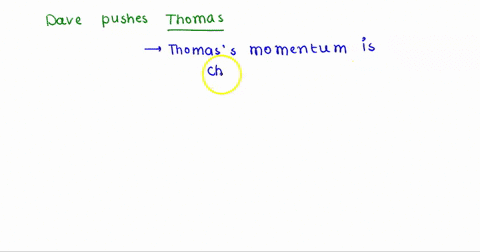 Dave pushes Thomas
→ Thomas's momentum is
ch